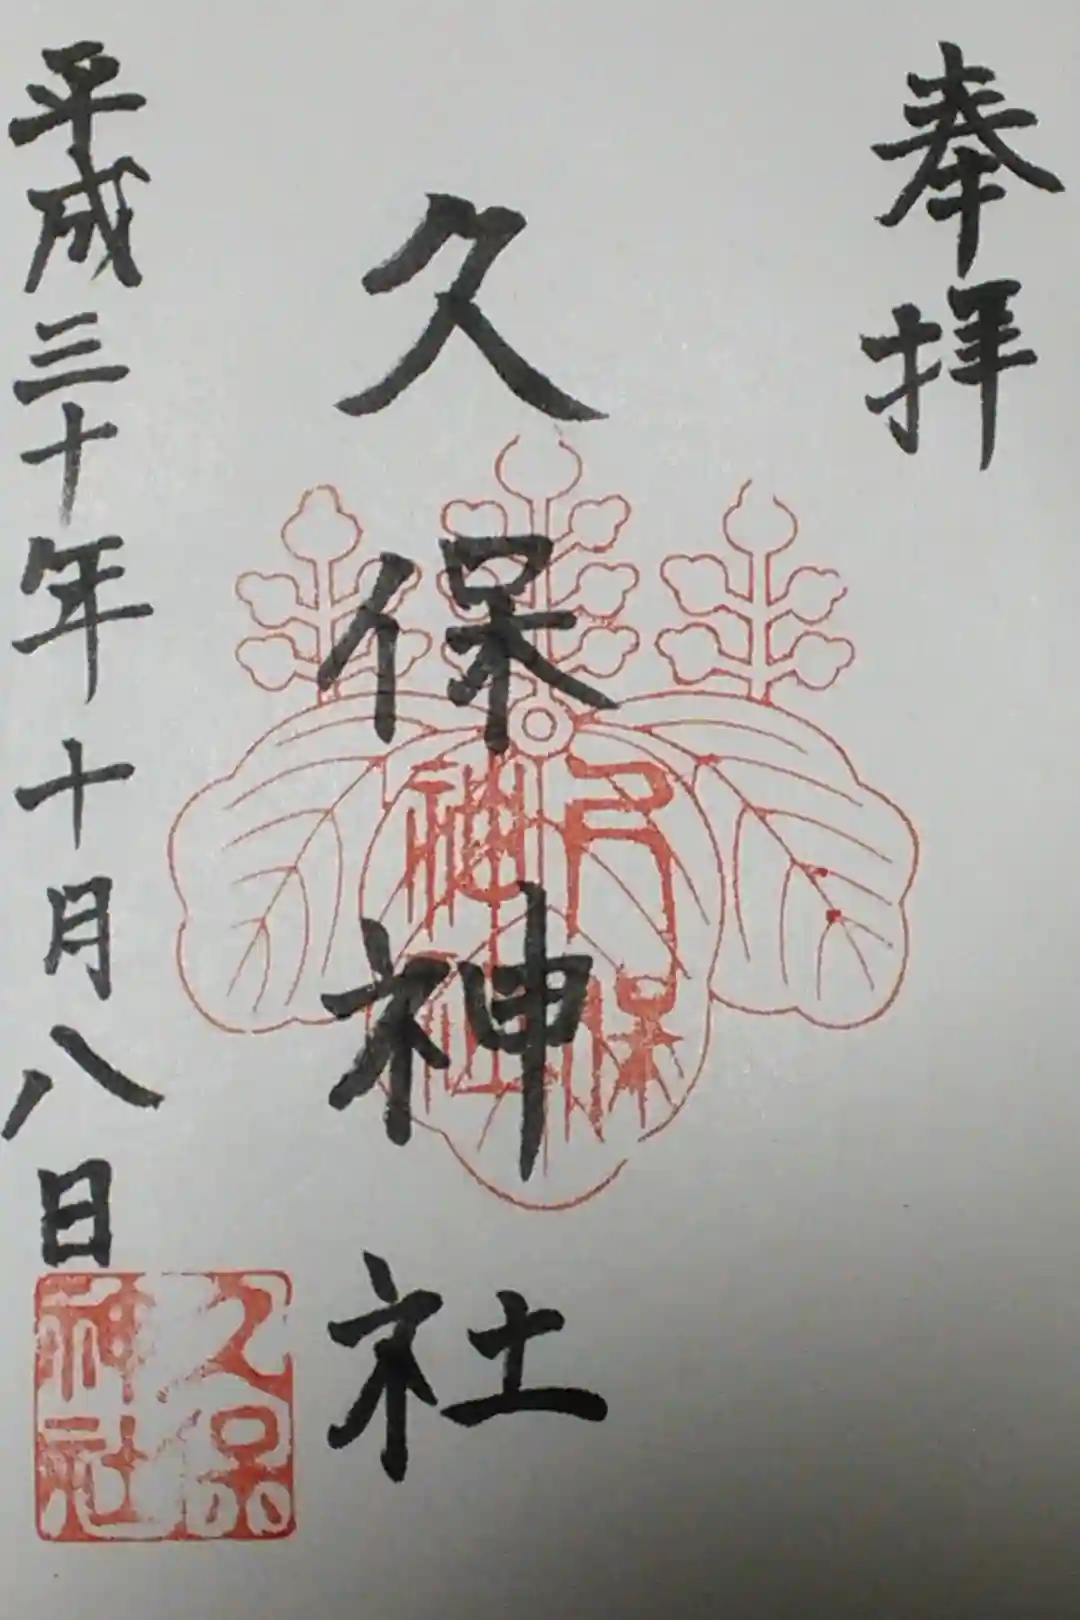 奉拝
久保神社
平成三十年十月八日
久保
神社
久保
神社